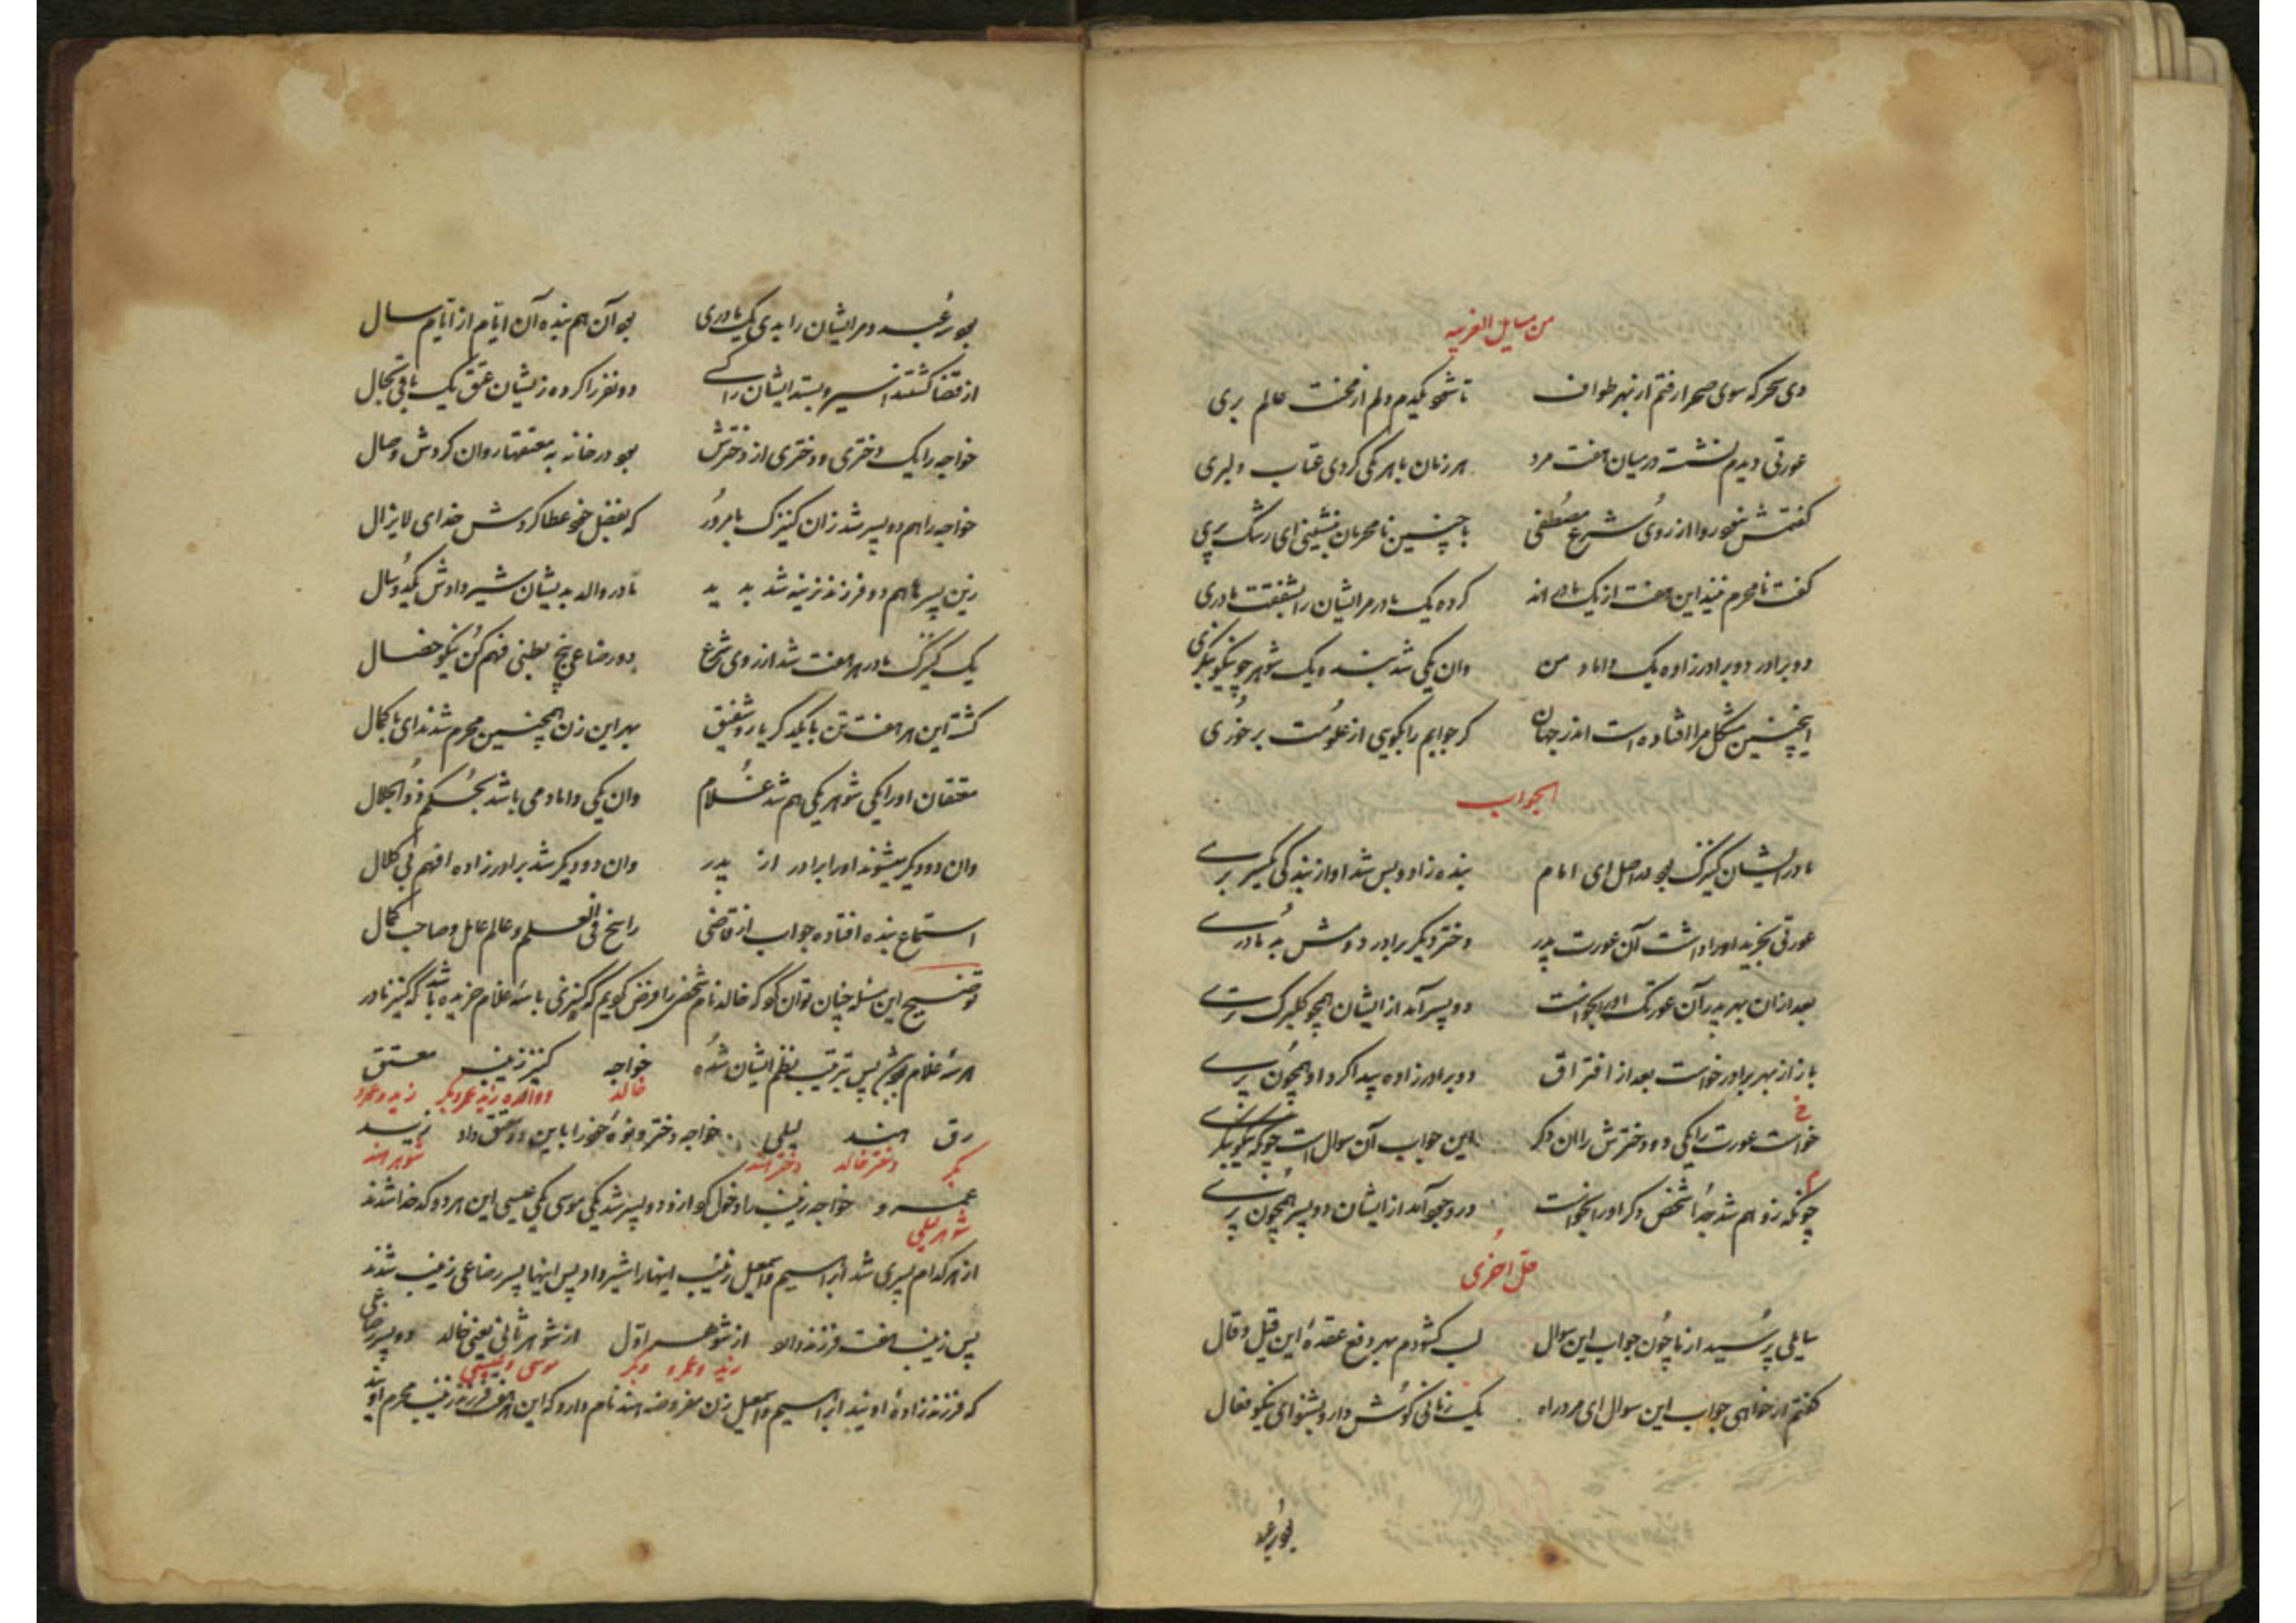 من مسایل الغریبه
دی سحرکه سوی صحرا رفتم از بهر طواف تا شود یکدم دلم از محنت عالم بری
عورتی دیدم نشسته در میان هفت مرد هر زمان با هر یکی کردی عتاب و لبری
گفتمش نبود روا از روی شرع مصطفی با چنین نامحرمان بنشینی ای رشک پری
گفت نامحرم نیند این هفت از یک مادراند کرده یک مادر مر ایشان را بشفقت مادری
دو برادر دو برادرزاده یک داماد من وان یکی شد بنده و یک شوهر چو نیکو بنگری
اینچنین مشکل مرا افتاده است اندر جهان گر جوابم را بگویی از علومت برخوری
الجواب
مادر ایشان کنیزک بود در اصل ای امام بنده زاد و پس شد او از بندگی یکسر بری
عورتی بخرید او را داشت آن عورت پدر دختر دیگر برادر دومش به مادری
بعد از آن بهر پدر آن عورتک او را بخواست دو پسر آمد از ایشان همچو گلبرگ تری
باز از بهر برادر خواست بعد از افتراق دو برادرزاده پیدا کرد او همچون پری
خواست عورت را یکی و دو دخترش را آن دگر این جواب آن سوال است چونکه نیکو بنگری
چونکه زو هم شد جدا شخص دگر او را بخواست در وجود آمد از ایشان دو پسر همچون پری
حل اخری
سایلی پرسید از ما چون جواب این سوال لب گشودم بهر دفع عقده این قیل و قال
گفتم ار خواهی جواب این سوال ای مرد راه یک زمانی گوش دار و بشنو ای نیکو فعال
بود عبد
بود سه عبد و مر ایشان را بدی یک مادری بود آن هم بنده آن ایام از ایام سال
از قضا گشتند اسیر و بستد ایشان را کسی دو نفر را کرده ز ایشان عتق یک باقی بحال
خواجه را یک دختری و دختری از دخترش بود در خانه به معتقها روان کردش وصال
خواجه را هم دو پسر شد زان کنیزک بامرور که بفضل خود عطا کردش خدای لایزال
زین پسرها هم دو فرزند نرینه شد پدید مادر والد بدیشان شیر دادش یکدو سال
یک کنیزک مادر هر هفت شد از روی شرع دو رضاعی پنج بطنی فهم کن نیکو خصال
گشته این هر هفت تن با یکدگر یار و شفیق بهر این زن اینچنین محرم شدند ای با کمال
معتقان او را یکی شوهر یکی هم شد غلام وان یکی داماد می باشد بحکم ذو الجلال
وان دو دیگر میشوند او را برادر از پدر وان دو دیگر شد برادرزاده افهم بی کلال
استماع بنده افتاده جواب از قاضی راسخ فی العلم و عالم عامل و صاحب کمال
توضیح این مسئله چنان توان کرد که خالد نام شخصی را فرض کویم که کنیزی با سه غلام خریده باشد که کنیز مادر
هر سه غلام بود پس ترتیب نظم ایشان شده خواجه کنیز زینب معتق
خالد و والده زید عمرو بکر زید و عمرو
رق هند لیلی خواجه دختر و نوه خود را باین دو معتق داد زید
بکر دختر خالد دختر هند شوهر هند
عمرو خواجه زینب را دخول کرد ازو دو پسر شد یکی موسی یکی عیسی این هر دو کدخدا شدند
شوهر لیلی
از هر کدام پسری شد ابراهیم و اسمعیل زینب اینها را شیر داد پس اینها پسر رضاعی زینب شدند
پس زینب هفت فرزند دارد از شوهر اول از شوهر ثانی یعنی خالد دو پسر رضاعی
زید و عمرو و بکر موسی و عیسی
که فرزندزاده اویند ابراهیم و اسمعیل زن مفروضه هند نام دارد که این هفت فرزند زینب محرم اویند